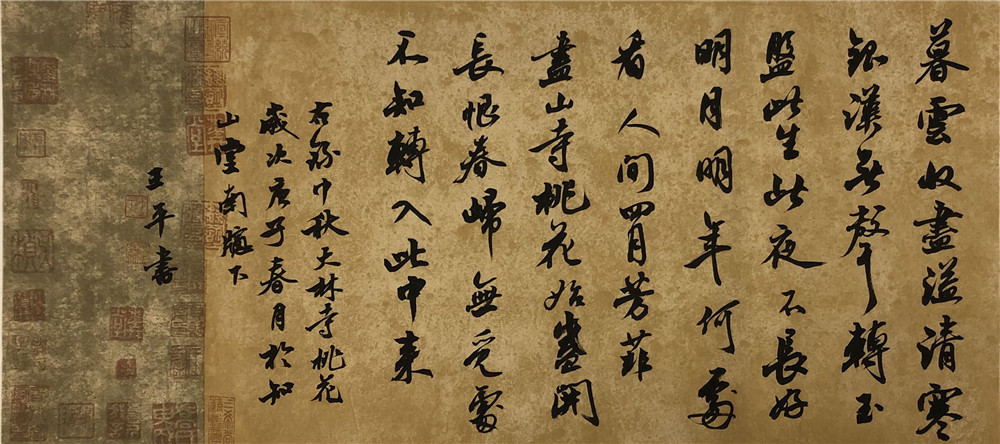 暮雲收盡溢清寒
銀漢無聲轉玉
盤此生此夜不長好
明月明年何處
看人间四月芳菲
盡山寺桃花始盛開
長恨春歸無覓處
不知轉入此中來
右錄中秋大林寺桃花
歲次庚子春月於知
山堂南牕下
王平書